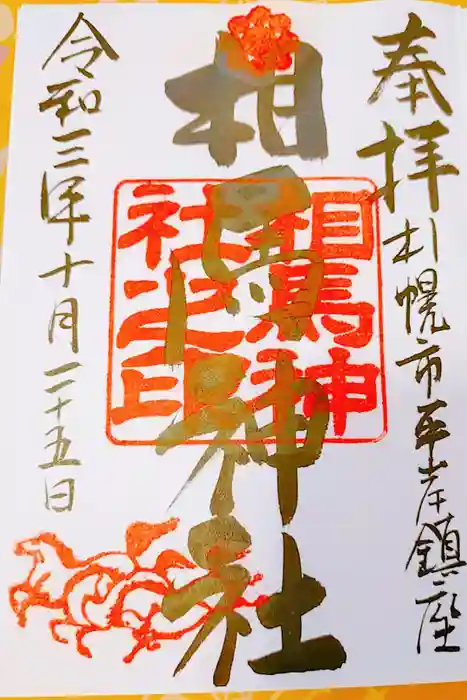 奉拝 札幌市平岸鎮座
相馬神社
相馬神
社之印
令和三年十月二十五日